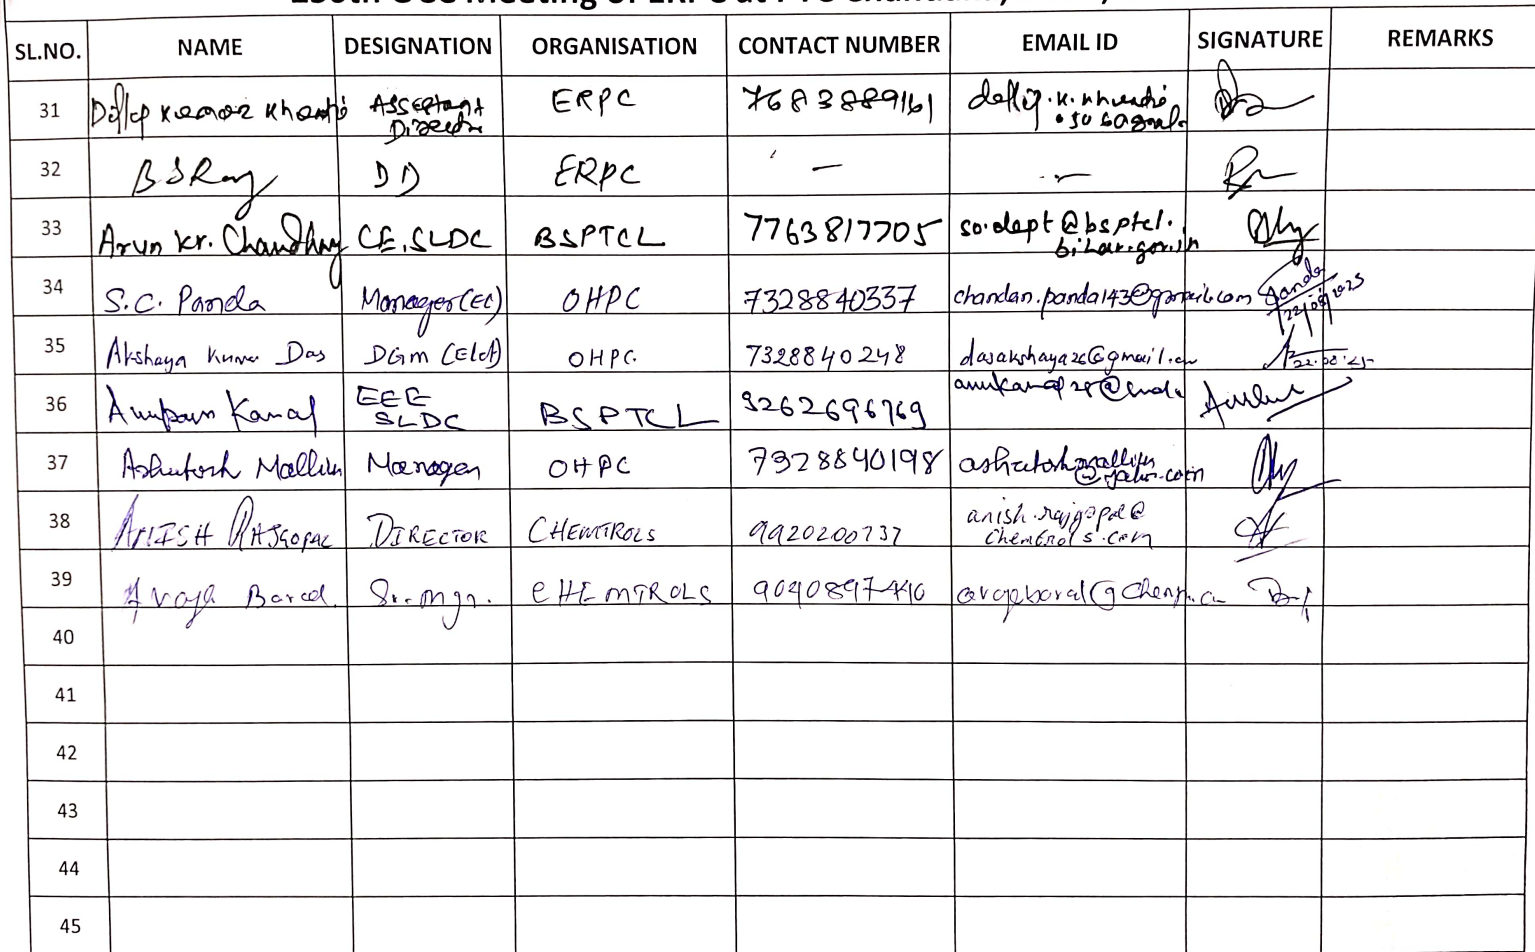 SL.NO. NAME DESIGNATION ORGANISATION CONTACT NUMBER EMAIL ID SIGNATURE REMARKS
31 Assistant Director ERPC 7683889161
32 B S Ray DD ERPC — —
33 Arun Kr. Chaudhary CE, SLDC BSPTCL 7763817705 so.dept@bsptcl.
bihar.gov.in
34 S.C. Panda Manager (El) OHPC 7328840337 chandan.panda143@gmail.com Panda
22/08/2025
35 Akshaya Kumar Das DGM (Elct) OHPC. 7328840248 dasakshaya26@gmail.com
22.08.25
36 Anupam Kamal EEE
SLDC BSPTCL 9262696769
37 Ashutosh Mallick Manager OHPC 7328840198
38 ANISH RAJGOPAL DIRECTOR CHEMTROLS 9920200737 anish.rajgopal@
chemtrols.com
39 Sr. Mgr. CHEMTROLS
40
41
42
43
44
45